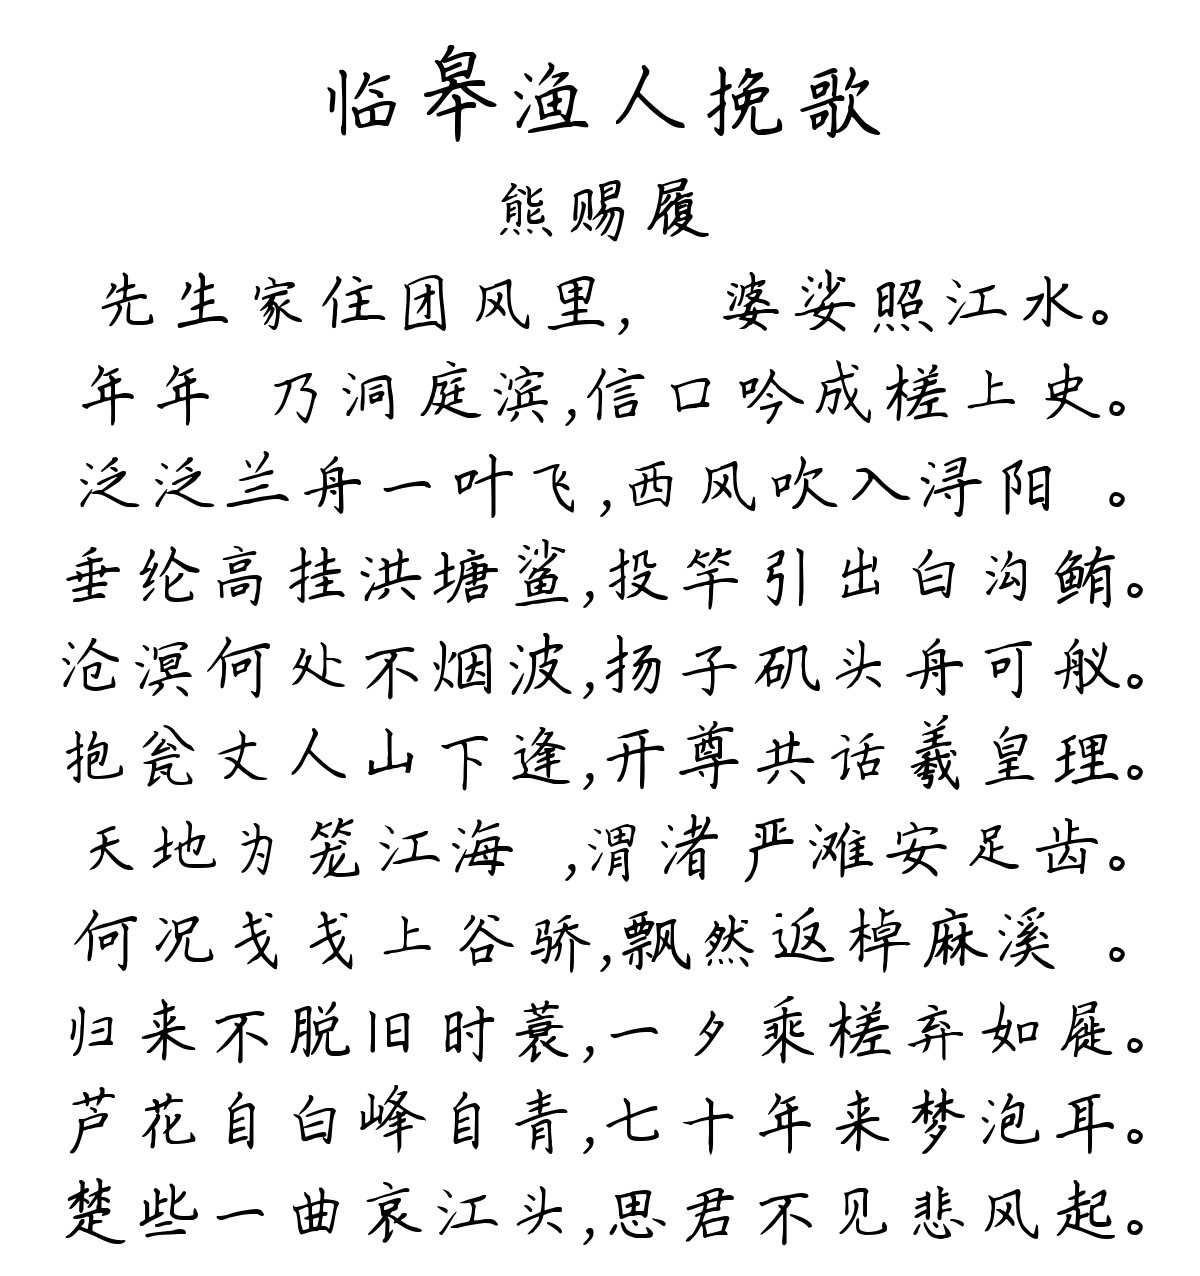 临皋渔人挽歌
熊赐履
先生家住团风里, 婆娑照江水。
年年 乃洞庭滨,信口吟成槎上史。
泛泛兰舟一叶飞,西风吹入浔阳 。
垂纶高挂洪塘鲨,投竿引出白沟鲔。
沧溟何处不烟波,扬子矶头舟可舣。
抱瓮丈人山下逢,开尊共话羲皇理。
天地为笼江海 ,渭渚严滩安足齿。
何况戋戋上谷骄,飘然返棹麻溪 。
归来不脱旧时蓑,一夕乘槎弃如屣。
芦花自白峰自青,七十年来梦泡耳。
楚些一曲哀江头,思君不见悲风起。